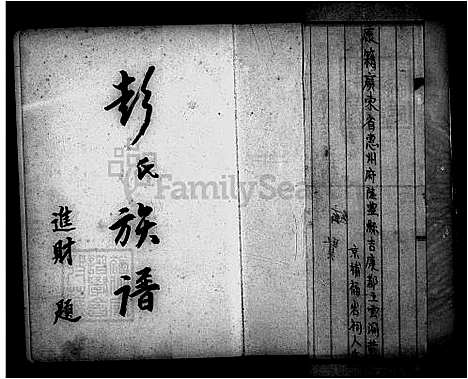 原籍廣東省惠州府陸豐縣吉康都上雲洞
京埔
祠人
彭氏族譜
進財 題
FamilySearch